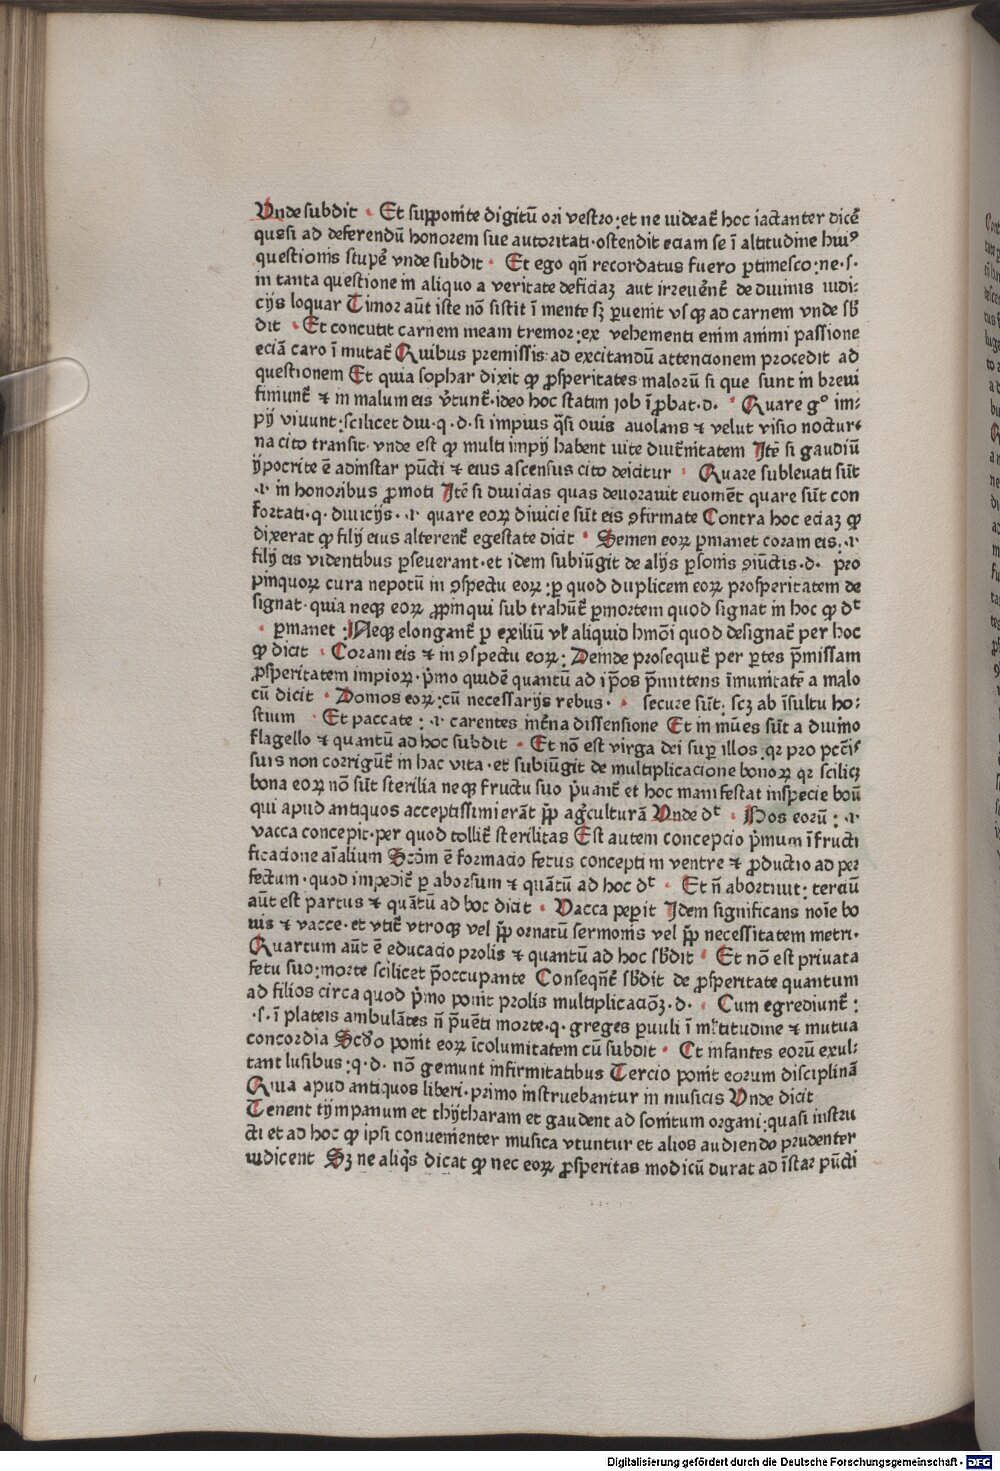 Vnde subdit · Et supponite digitū ori vestro: et ne uideat̄ hoc iactanter dicē
quasi ad deferendū honorem sue autoritati·ostendit eciam se ī altitudine huiꝰ
questionis stupē vnde subdit · Et ego qn̄ recordatus fuero ꝑtimesco: ne·s·
in tanta questione in aliquo a veritate deficiaꝫ aut irreuēnt̄ de diuinis iudi:
cijs loquar Timor aūt iste nō sistit ī mente sꝫ ꝑuenit vsqꝫ ad carnem vnde sb̄
dit · Et concutit carnem meam tremor: ex vehementi enim animi passione
eciā caro īmutat̄ Quibus premissis ad excitandū attencionem procedit ad
questionem Et quia sophar dixit ꝙ ꝓsperitates malorū si que sunt in breui
finiunt̄ ⁊ in malum eis v̄tunt̄·ideo hoc statim job īꝓbat·d· · Quare gº im:
pij viuunt: scilicet diu·q·d·si impius q̄si ouis auolans ⁊ velut visio noctur:
na cito transit·vnde est ꝙ multi impij habent uite diut̄nitatem Itē si gaudiū
ypocrite ē adinstar pūcti ⁊ eius ascensus cito deicitur · Quare subleuati sūt
·⁊ in honoribus ꝓmoti Itē si diuicias quas deuorauit euomēt quare sūt con
fortati·q·diuicijs·⁊ quare eoꝝ diuicie sūt eis ꝯfirmate Contra hoc eciaꝫ ꝙ
dixerat ꝙ filij eius alterent̄ egestate dicit · Semen eoꝝ ꝑmanet coram eis·⁊
filij eis videntibus ꝑseuerant·et idem subiūgit de alijs ꝑsonis ꝯiūctis·d· pro
pinquoꝝ cura nepotū in ꝯspectu eoꝝ: ꝑ quod duplicem eoꝝ prosperitatem de
signat·quia neqꝫ eoꝝ ꝓpinqui sub trahūt̄ ꝑmortem quod signat in hoc ꝙ dᵗ
· ꝑmanet · Neqꝫ elongant̄ ꝑ exiliū vl̓ aliquid hmōi quod designat̄ per hoc
ꝙ dicit · Coram eis ⁊ in ꝯspectu eoꝝ: Deinde prosequit̄ per ꝑtes p̄missam
ꝓsperitatem impioꝝ·p̄mo quidē quantū ad ip̄os p̄mittens īmunitatē a malo
cū dicit · Domos eoꝝ: cū necessarijs rebus· · secure sūt: scꝫ ab īsultu ho:
stium · Et paccate: ⁊ carentes int̄na dissensione Et immūes sūt a diuino
flagello ⁊ quantū ad hoc subdit · Et nō est virga dei suꝑ illos qꝛ pro pctīs
suis non corrigūt̄ in hac vita·et subiūgit de multiplicacione bonoꝝ qꝛ scilicꝫ
bona eoꝝ nō sūt sterilia neqꝫ fructu suo p̄uant̄ et hoc manifestat inspecie boū
qui apud antiquos acceptissimi erāt ꝓp̄ ag̓culturā Vnde dᵗ · Bos eorū: ⁊
vacca concepit·per quod tollit̄ sterilitas Est autem concepcio p̄mum ī fructi
ficacione aīalium Scōm ē formacio fetus concepti in ventre ⁊ ꝓductio ad per
fectum·quod impedit̄ ꝑ aborsum ⁊ quātū ad hoc dᵗ · Et n̄ abortiuit: terciū
aūt est partus ⁊ quātū ad hoc dicit · Vacca peperit Idem significans noīe bo
uis ⁊ vacce·et vtit̄ vtroqꝫ vel ꝓp̄ ornatū sermonis vel ꝓp̄ necessitatem metri·
Quartum aūt ē educacio prolis ⁊ quantū ad hoc sb̄dit · Et nō est priuata
fetu suo: morte scilicet p̄occupante Conseqn̄t̄ sb̄dit de ꝓsperitate quantum
ad filios circa quod p̄mo ponit prolis multiplicaciōꝫ·d· · Cum egrediunt̄:
·s·ī plateis ambulātes n̄ p̄uēti morte·q·greges ꝑuuli ī mltitudine ⁊ mutua
concordia Scd̓o ponit eoꝝ īcolumitatem cū subdit · Et infantes eorū exul:
tant lusibus: q·d· nō gemunt infirmitatibus Tercio ponit eorum disciplinā
Quia apud antiquos liberi·primo instruebantur in musicis Vnde dicit
Tenent tympanum et thytharam et gaudent ad sonitum organi: quasi instru
cti et ad hoc ꝙ ipsi conuenienter musica vtuntur et alios audiendo prudenter
iudicent Sꝫ ne aliq̄s dicat ꝙ nec eoꝝ ꝓsperitas modicū durat ad īstar pūcti
Digitalisierung gefördert durch die Deutsche Forschungsgemeinschaft · DFG